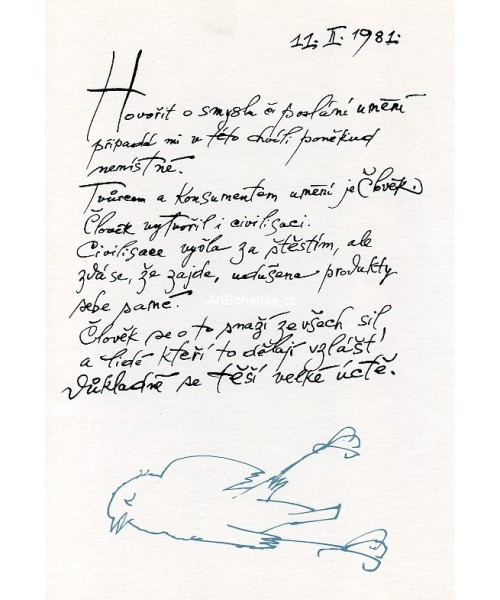 11. II. 1981.
Hovořit o smyslu či poslání umění
připadá mi v této chvíli poněkud
nemístné.
Tvůrcem a konsumentem umění je Člověk.
Člověk vytvořil i civilisaci.
Civilisace vyšla za štěstím, ale
zdá se, že zajde, udušena produkty
sebe samé.
ArtBohemia.cz
Člověk se o to snaží ze všech sil,
a lidé kteří to dělají vzlášť
důkladně se těší velké úctě.